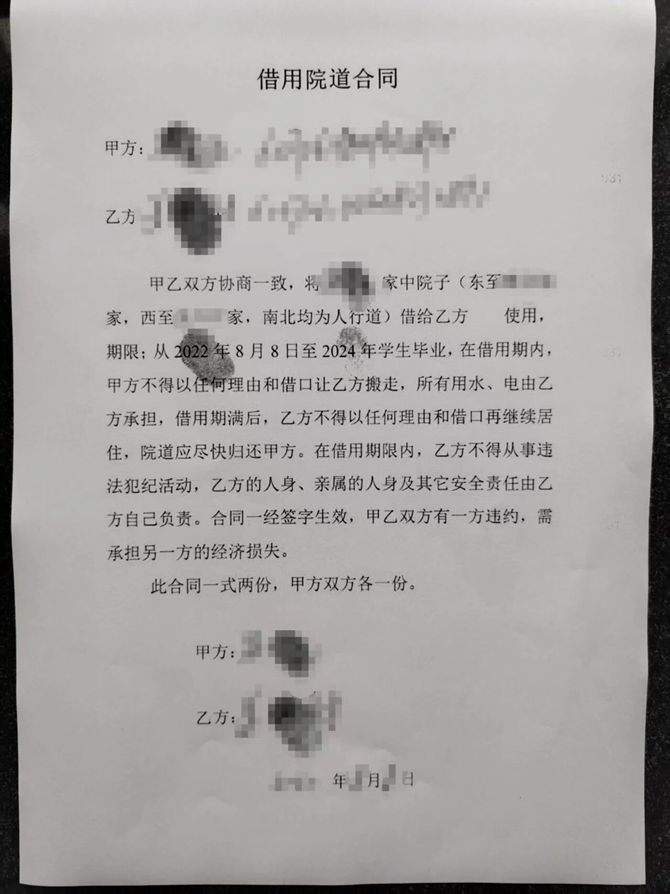 借用院道合同
甲方:
乙方
甲乙双方协商一致，将 家中院子（东至
家，西至 家，南北均为人行道）借给乙方 使用，
期限；从2022年8月8日至2024年学生毕业，在借用期内，
甲方不得以任何理由和借口让乙方搬走，所有用水、电由乙
方承担，借用期满后，乙方不得以任何理由和借口再继续居
住，院道应尽快归还甲方。在借用期限内，乙方不得从事违
法犯纪活动，乙方的人身、亲属的人身及其它安全责任由乙
方自己负责。合同一经签字生效，甲乙双方有一方违约，需
承担另一方的经济损失。
此合同一式两份，甲方双方各一份。
甲方:
乙方:
年 月 日